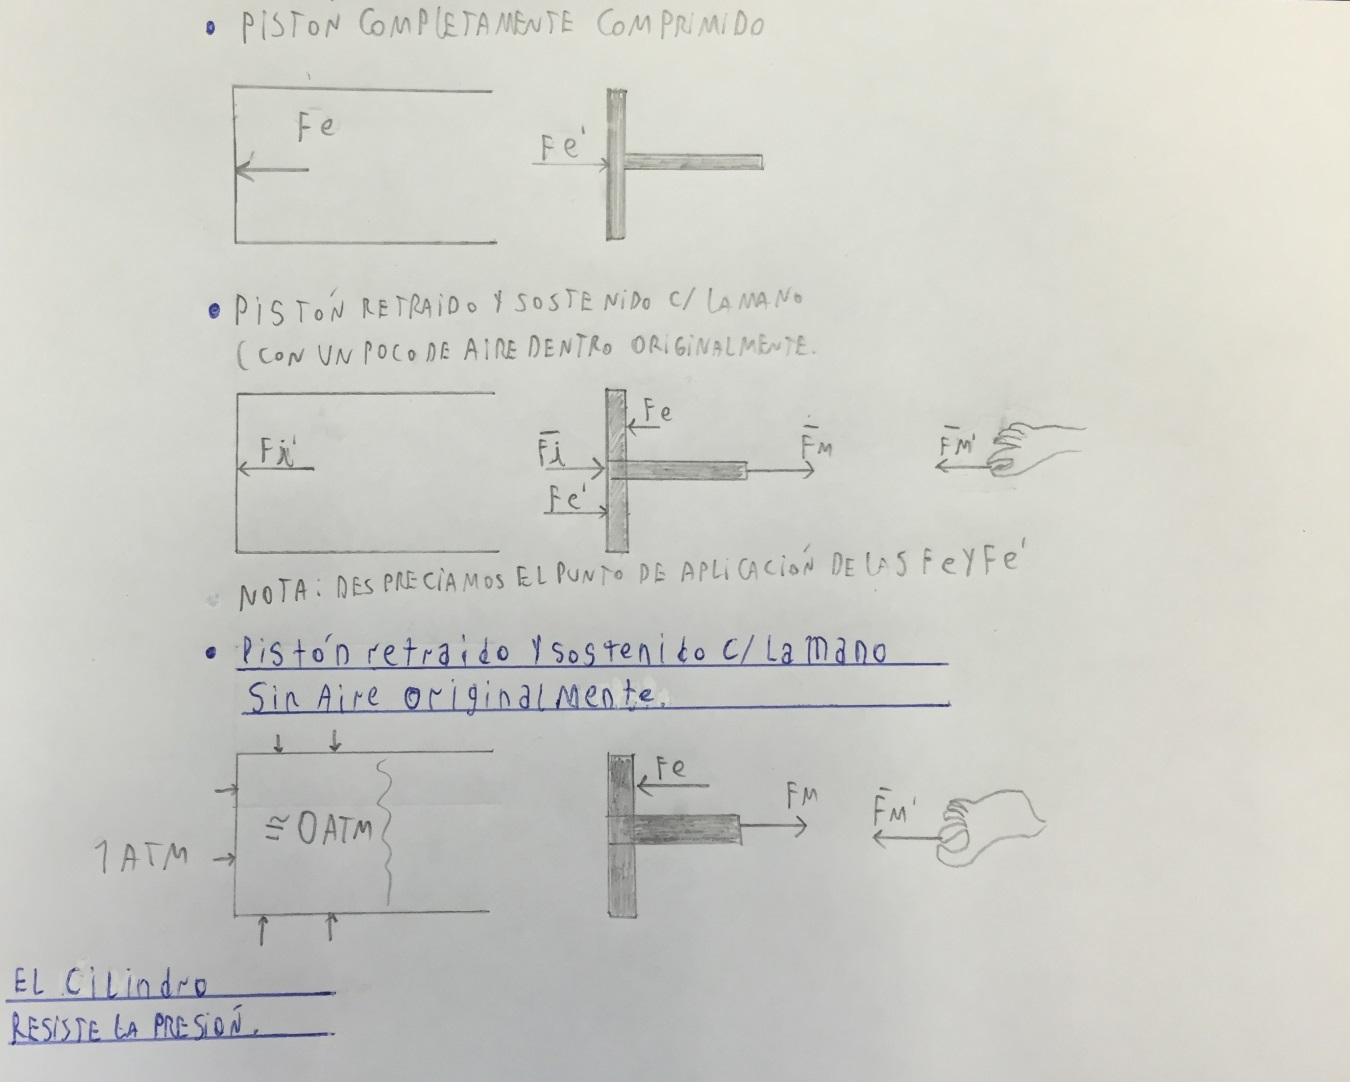 PISTÓN COMPLETAMENTE COMPRIMIDO
Fe
Fe'
PISTÓN RETRAIDO Y SOSTENIDO C/ LA MANO
(CON UN POCO DE AIRE DENTRO ORIGINALMENTE.
Fi'
Fi
Fe'
Fe
FM
FM'
NOTA: DESPRECIAMOS EL PUNTO DE APLICACIÓN DE LAS Fe Y Fe'
Pistón retraido Y sostenido C/ La mano
Sin Aire originalmente.
1 ATM
≅ 0 ATM
Fe
FM
FM'
EL CiLindro
RESISTE LA PRESIÓN.